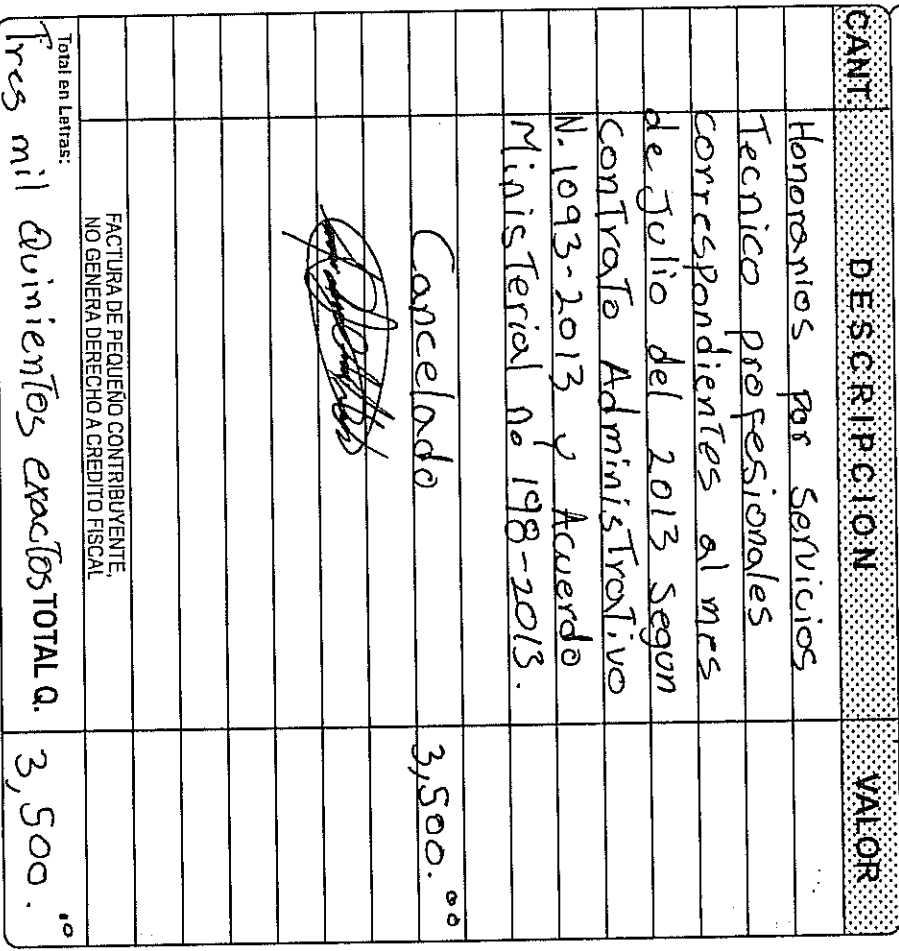 CANT. DESCRIPCION VALOR
Honorarios por Servicios
Tecnico profesionales
correspondientes al mes
de Julio del 2013 segun
Contrato Administrativo
N. 1093-2013 y Acuerdo
Ministerial no 198-2013.
Cancelado 3,500.00
FACTURA DE PEQUEÑO CONTRIBUYENTE,
NO GENERA DERECHO A CREDITO FISCAL
Total en Letras:
Tres mil Quinientos exactos TOTAL Q. 3,500.00